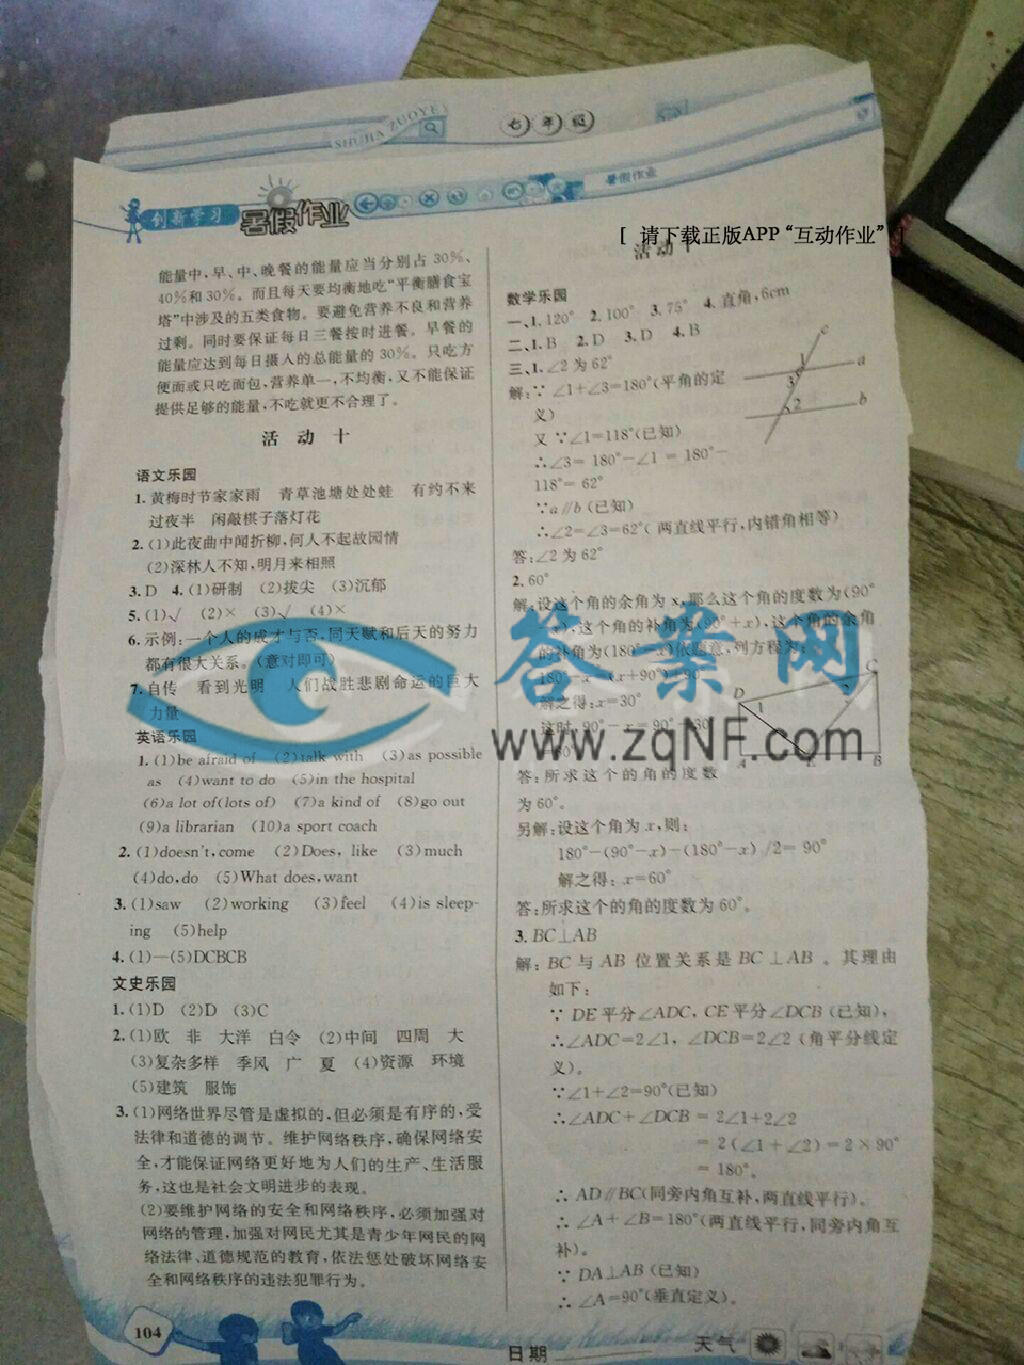 SHUJIA ZUOYE
七年级
创新学习
暑假作业
暑假作业
[ 请下载正版APP “互动作业” ]
能量中,早、中、晚餐的能量应当分别占30%、
40%和30%。而且每天要均衡地吃“平衡膳食宝
塔”中涉及的五类食物。要避免营养不良和营养
过剩。同时要保证每日三餐按时进餐。早餐的
能量应达到每日摄人的总能量的30%。只吃方
便面或只吃面包,营养单一,不均衡,又不能保证
提供足够的能量,不吃就更不合理了。
活 动 十
语文乐园
1.黄梅时节家家雨 青草池塘处处蛙 有约不来
过夜半 闲敲棋子落灯花
2.(1)此夜曲中闻折柳,何人不起故园情
(2)深林人不知,明月来相照
3.D 4.(1)研制 (2)拔尖 (3)沉郁
5.(1)√ (2)× (3)√ (4)×
6.示例:一个人的成才与否,同天赋和后天的努力
都有很大关系。(意对即可)
7.自传 看到光明 人们战胜悲剧命运的巨大
力量
英语乐园
1.(1)be afraid of (2)talk with (3)as possible
as (4)want to do (5)in the hospital
(6)a lot of(lots of) (7)a kind of (8)go out
(9)a librarian (10)a sport coach
2.(1)doesn't,come (2)Does, like (3)much
(4)do,do (5)What does,want
3.(1)saw (2)working (3)feel (4)is sleep-
ing (5)help
4.(1)—(5)DCBCB
文史乐园
1.(1)D (2)D (3)C
2.(1)欧 非 大洋 白令 (2)中间 四周 大
(3)复杂多样 季风 广 夏 (4)资源 环境
(5)建筑 服饰
3.(1)网络世界尽管是虚拟的,但必须是有序的,受
法律和道德的调节。维护网络秩序,确保网络安
全,才能保证网络更好地为人们的生产、生活服
务,这也是社会文明进步的表现。
(2)要维护网络的安全和网络秩序,必须加强对
网络的管理,加强对网民尤其是青少年网民的网
络法律、道德规范的教育,依法惩处破坏网络安
全和网络秩序的违法犯罪行为。
104
活动十
数学乐园
一、1.120° 2.100° 3.75° 4.直角,6cm
二、1.B 2.D 3.D 4.B
三、1.∠2为62°
解:∵ ∠1+∠3=180°(平角的定
义)
又∵∠1=118°(已知)
∴∠3= 180°-∠1 = 180°-
118°= 62°
∵a∥b(已知)
∴∠2=∠3=62°( 两直线平行,内错角相等)
c
1
a
3
2
b
答:∠2为62°
2.60°
解:设这个角的余角为x,那么这个角的度数为(90°
x),这个角的补角为(90°+x),这个角的余角
的补角为(180°-x)依题意,列方程为:
180°-x= (x+90°)+90°
解之得:x=30°
这时,90°-x=90°-30°
答:所求这个的角的度数
为60°。
D
1
C
2
A
E
B
答案网
www.zqNF.com
另解:设这个角为x,则:
180°-(90°-x)-(180°-x) /2= 90°
解之得: x=60°
答:所求这个的角的度数为60°。
3.BC⊥AB
解:BC与AB位置关系是BC⊥AB 。其理由
如下:
∵ DE平分∠ADC, CE平分∠DCB (已知),
∴∠ADC=2∠1, ∠DCB=2∠2 (角平分线定
义)。
∵∠1+∠2=90°(已知)
∴∠ADC+∠DCB = 2∠1+2∠2
= 2(∠1+∠2)=2×90°
= 180°。
∴ AD∥BC(同旁内角互补,两直线平行)。
∴∠A+∠B=180°(两直线平行,同旁内角互
补)。
∵ DA⊥AB (已知)
∴∠A=90°(垂直定义)。
日期
天气